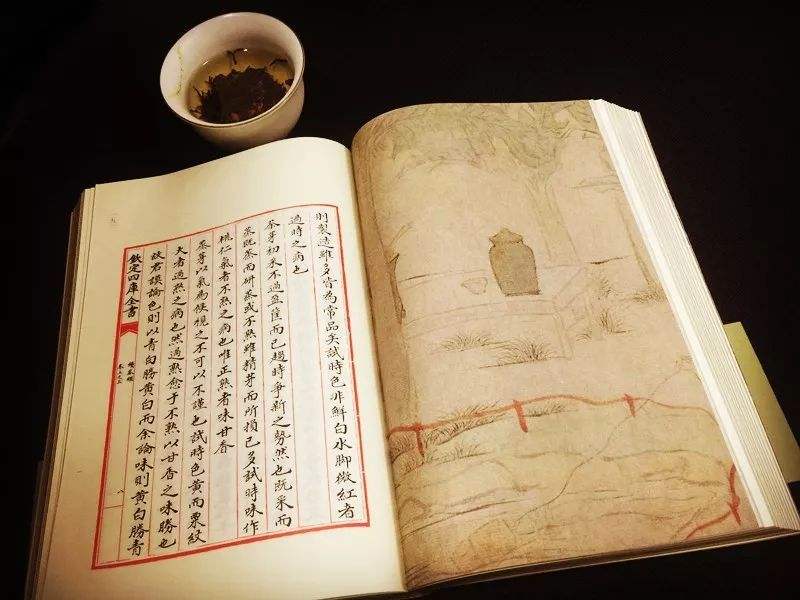 則製造雖多皆為常品矣試時色非鮮白水脚微紅者
過時之病也
茶芽初采不過盈筐而已趨時爭新之勢然也既采而
蒸既蒸而研蒸或不熟雖精芽而所損已多試時味作
桃仁氣者不熟之病也唯正熟者味甘香
蒸芽以氣為候視之不可以不謹也試時色黃而粟紋
大者過熟之病也然過熟愈于不熟以甘香之味勝也
故君謨論色則以青白勝黃白而余論味則黃白勝青
欽定四庫全書
續茶經
卷上之三
八